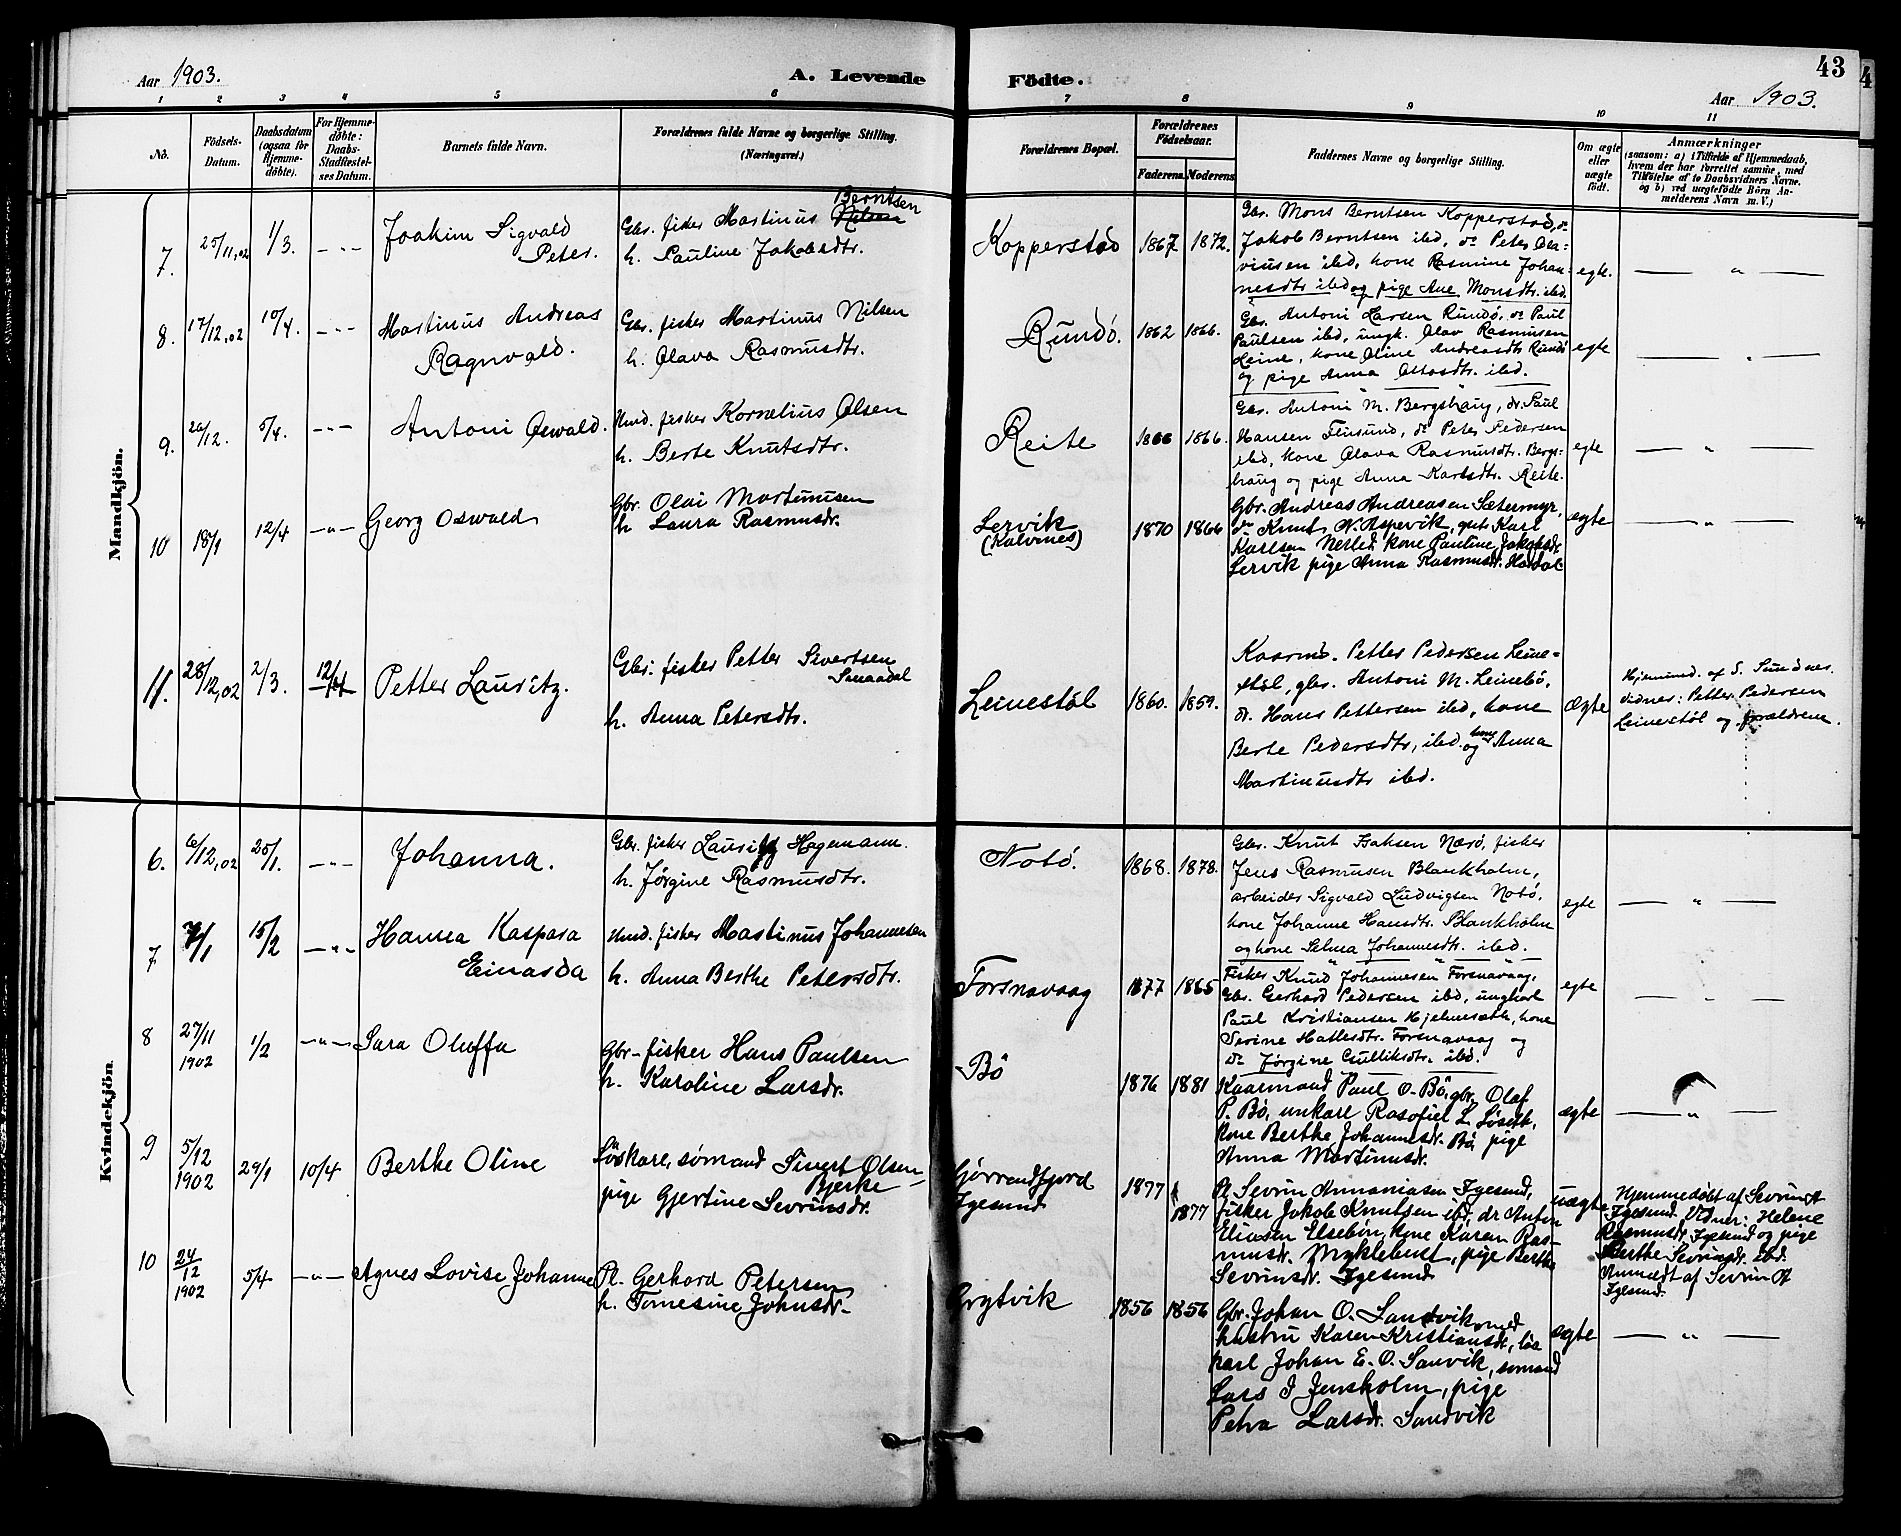 43
Aar 1903.
A. Levende
Födte.
Aar 1903.
1 2 3 4 5 6 7 8 9 10 11
No.
Födsels-
Datum.
Daabsdatum
(ogsaa for
Hjemme-
döbte).
For Hjemme-
döbte:
Daabs-
Stadfæstel-
ses Datum.
Barnets fulde Navn.
Forældrenes fulde Navne og borgerlige Stilling.
(Næringsvei.)
Forældrenes Bopæl.
Forældrenes
Födselsaar.
Faderens. Moderens.
Faddernes Navne og borgerlige Stilling.
Om ægte
eller
uægte
födt.
Anmærkninger
(saasom: a) i Tilfælde af Hjemmedaab,
hvem der har forrettet samme, med
Tilföielse af to Daabsvidners Navne,
og b) ved uægtefödte Börn An-
melderens Navn m. V.)
Mandkjön.
7. 25/11,02 1/3. — " —
Joakim Sigvald
Peter.
Berntsen
Gbr. fisker Martinus Nilsen
h. Pauline Jakobsdtr.
Kopperstad 1867 1872.
Gbr. Mons Berntsen Kopperstad, do
Jakob Berntsen ibd, do Peter Ola-
viusen ibd, kone Rasmine Johan-
nesdtr ibd og pige Ane Monsdtr. ibd.
egte. — " —
8. 17/12,02 10/4. — " —
Martinus Andreas
Ragnvald.
Gbr. fisker Martinus Nilsen
h. Olava Rasmusdtr.
Rundö. 1862 1866.
Gbr. Antoni Larsen Rundö, do Paul
Paulsen ibd, ungk. Olav Rasmusen
Leine, kone Oline Andreasdtr Rundö
og pige Anna Ottosdtr. ibd.
egte — " —
9. 20/12. 5/4. — " —
Antoni Oswald.
Huud. fisker Kornelius Olsen
h. Berte Knutsdtr.
Reite 1866 1866.
Gbr. Antoni M. Bergshaug, dr. Paul
Hansen Flusund, do Peter Pedersen
ibd, kone Olava Rasmusdtr. Bergs-
haug og pige Anna Karlsdtr. Reite.
egte — " —
10 18/1 12/4 — " —
Georg Oswald
Gbr. Olai Martinusen
h Laura Rasmusdr.
Lervik
(Kalvines)
1870 1866
Gbr. Andreas Andreasen Sætermyr,
do Knut N. Aspevik, gut Karl
Karlsen Nerled kone Pauline Jakobsdr
Lervik pige Anna Rasmusdr.
ægte — " —
11. 28/12,02 2/3. 12/4
Petter Lauritz.
Gbr. fisker Petter Sivertsen
h. Anna Petersdtr.
Leinestöl 1860. 1859.
Kaarmd. Petter Pedersen Leine-
stöl, gbr. Antoni M. Leinebö,
dr. Hans Pettersen ibd, kone
Berte Pedersdtr, ibd. og kone Anna
Martinusdtr ibd.
Ægte
Vidner: Petter Pedersen
Leinestöl og forældrene.
Kvindekjön
6. 6/12,02 25/1. — " —
Johanna.
Gbr. fisker Lauritz Hagemann.
h. Jørgine Rasmusdtr.
Notö. 1868. 1878.
Gbr. Knut Isaksen Nærö, fisker
Jens Rasmusen Blankholm,
arbeider Sigvald Ludvigsen Notö,
kone Johanne Hansdtr. Blankholm
og kone Selma Johannesdtr. ibd.
egte — " —
7 7/1 15/2 — " —
Hanna Kaspara
Einarda
Huud. fisker Martinus Johannesen
h. Anna Berthe Petersdtr.
Forsnavaag 1877 1865
Fisker Knud Johannesen Forsnavaag,
Gbr. Gerhard Pedersen ibd, ungkarl
Paul Kristiansen Hjelmesæth, kone
Serine Hallesdtr. Forsnavaag og
do Jørgine Gulliksdtr. ibd.
egte — " —
8 27/11
1902 1/2 — " —
Sara Oluffa
Gbr-fisker Hans Paulsen
h. Karoline Larsdr.
Bö 1876 1881
Kaarmand Paul O. Bö, gbr. Olaf
P. Bö, unkarl Rasofiel L. Löseth,
kone Berthe Johannesdr. Bö, pige
Anna Martinusdr.
ægte — " —
9 5/12
1902 29/1 10/4
Berthe Oline
Löskarl, sømand Sivert Olsen
Bjerke —
pige Gjertine Sevrinsdr.
Gjørrendfjord
Igesund
1877 1877
Pl. Sevrin Annaniasen Igesund,
fisker Jakob Knutsen ibd, dr Anton
Eliasen Elsebön, kone Karen Ras-
musdr. Myklebust, pige Berthe
Sevrinsdr. Igesund
uægte
Hjemmedöbt af Sevrin A
Igesund. Vidner: Helene
Rasmusdr. Igesund og pige
Berthe Sevrinsdr. ibd.
Anmeldt af Sevrin A
Igesund.
10 24/12
1902 5/4 — " —
Agnes Lovise Johanne
Pl. Gerhard Petersen
h. Tomesine Johnsdr-
Grytvik 1856 1856
Gbr. Johan O. Sandvik med
hustru Karen Kristiansdr, løs
karl Johan E. O. Sanvik, sömand
Lars J Jensholm, pige
Petra Larsdr. Sandvik
ægte — " —